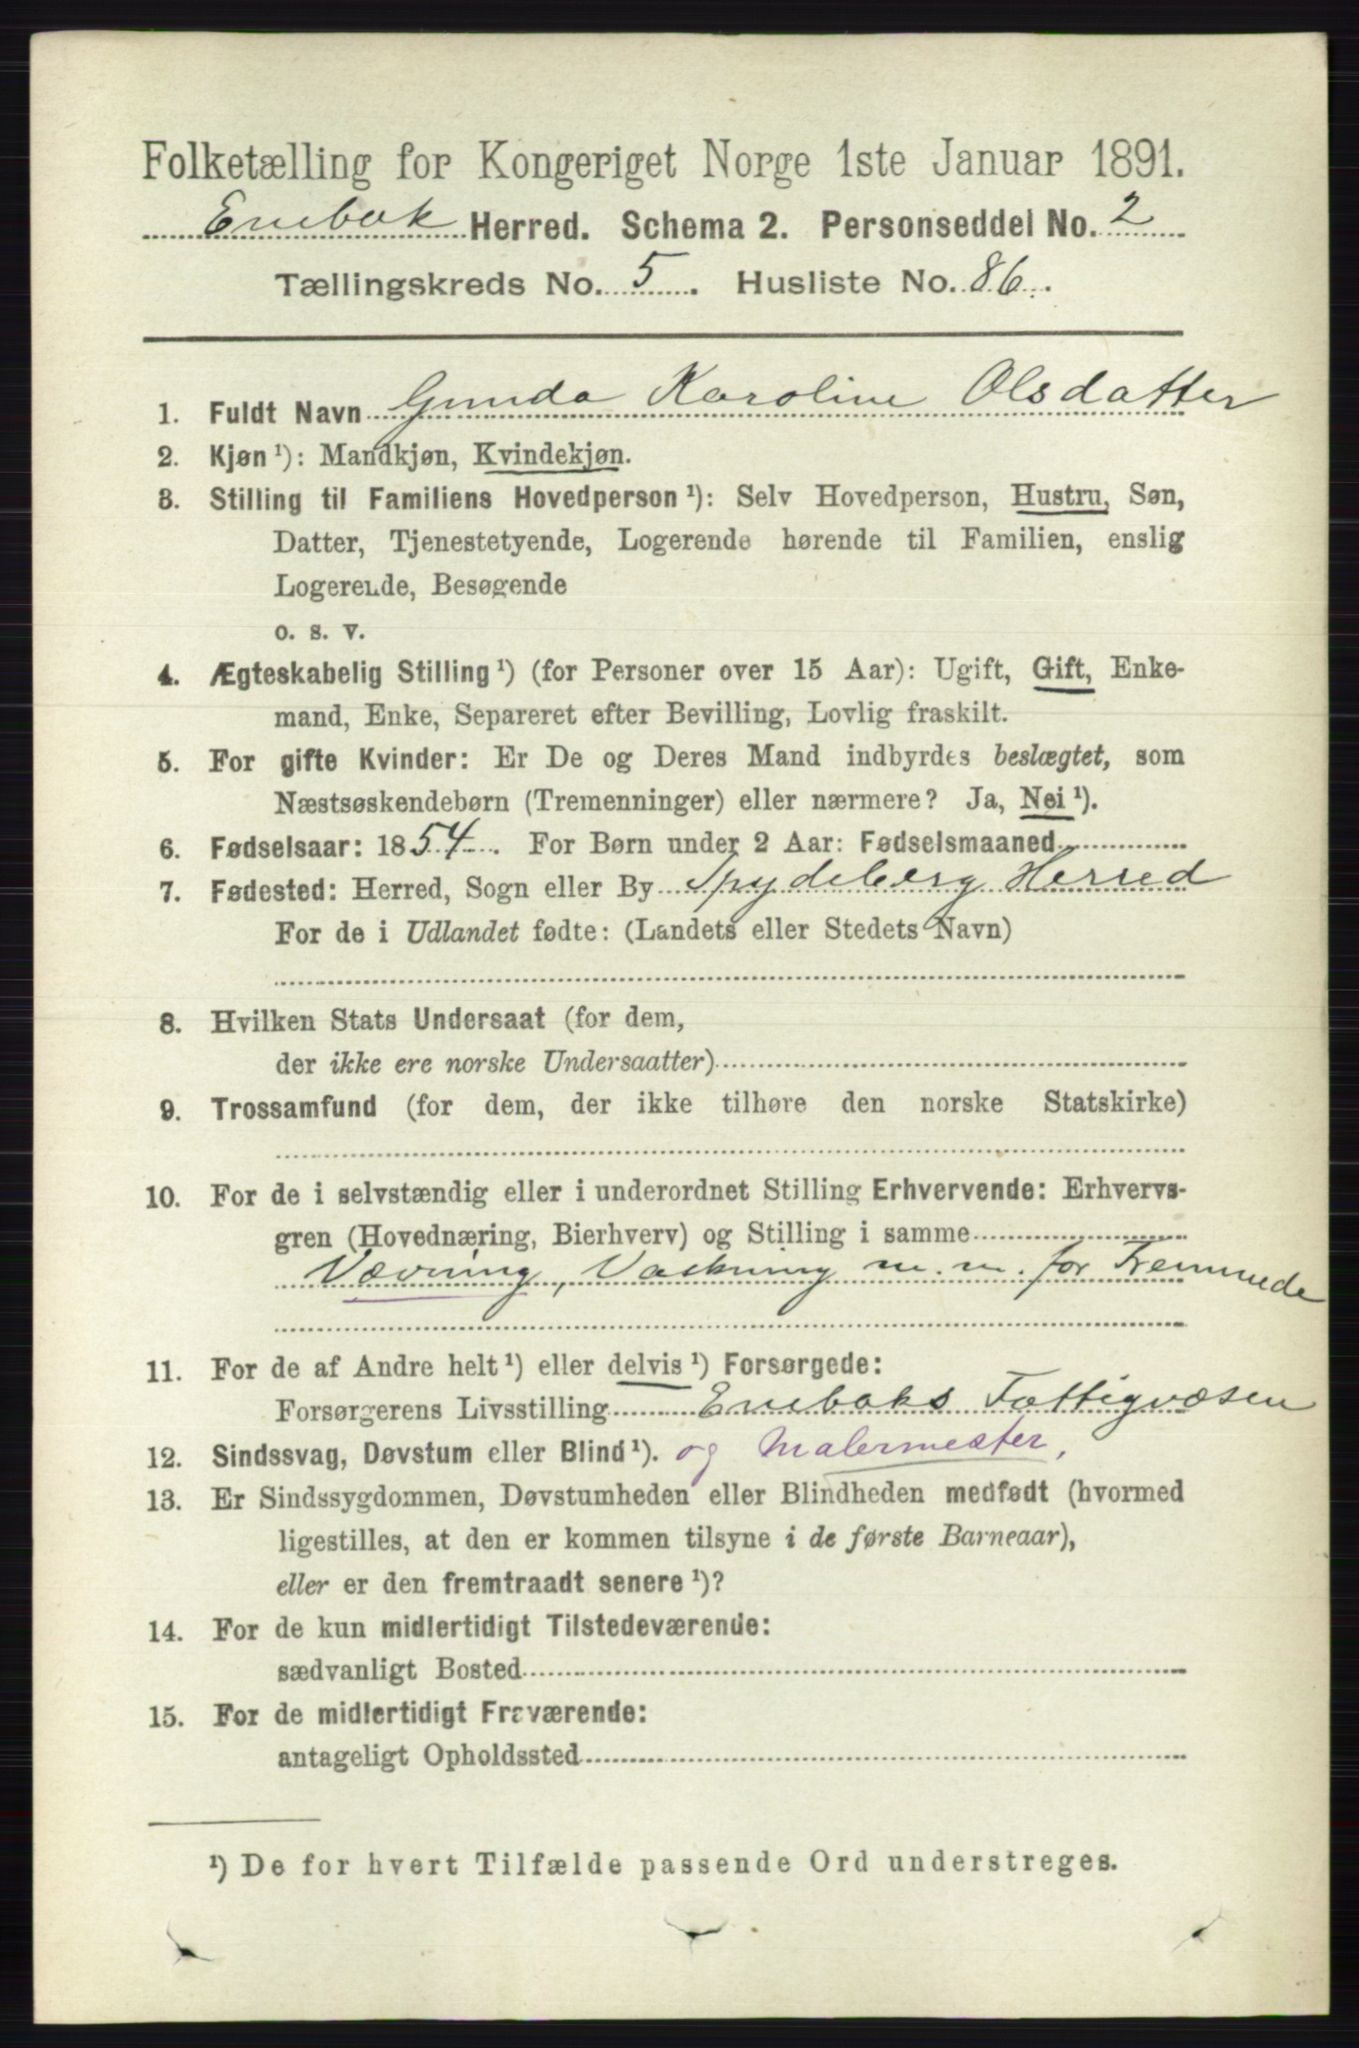 Folketælling for Kongeriget Norge 1ste Januar 1891.
Enebak Herred. Schema 2. Personseddel No. 2
Tællingskreds No. 5. Husliste No. 86.
1. Fuldt Navn Gunda Karoline Olsdatter
2. Kjøn ¹): Mandkjøn, Kvindekjøn.
3. Stilling til Familiens Hovedperson ¹): Selv Hovedperson, Hustru, Søn,
Datter, Tjenestetyende, Logerende hørende til Familien, enslig
Logerende, Besøgende
o. s. v.
4. Ægteskabelig Stilling ¹) (for Personer over 15 Aar): Ugift, Gift, Enke-
mand, Enke, Separeret efter Bevilling, Lovlig fraskilt.
5. For gifte Kvinder: Er De og Deres Mand indbyrdes beslægtet, som
Næstsøskendebørn (Tremenninger) eller nærmere? Ja, Nei ¹).
6. Fødselsaar: 1854. For Børn under 2 Aar: Fødselsmaaned
7. Fødested: Herred, Sogn eller By Spydeberg Herred
For de i Udlandet fødte: (Landets eller Stedets Navn)
8. Hvilken Stats Undersaat (for dem,
der ikke ere norske Undersaatter)
9. Trossamfund (for dem, der ikke tilhøre den norske Statskirke)
10. For de i selvstændig eller i underordnet Stilling Erhvervende: Erhvervs-
gren (Hovednæring, Bierhverv) og Stilling i samme
Vævning, Vaskning m. m. for Fremmede
11. For de af Andre helt ¹) eller delvis ¹) Forsørgede:
Forsørgerens Livsstilling Enebaks Fattigvæsen
12. Sindssvag, Døvstum eller Blind ¹). og Malermester,
13. Er Sindssygdommen, Døvstumheden eller Blindheden medfødt (hvormed
ligestilles, at den er kommen tilsyne i de første Barneaar),
eller er den fremtraadt senere ¹)?
14. For de kun midlertidigt Tilstedeværende:
sædvanligt Bosted
15. For de midlertidigt Fraværende:
antageligt Opholdssted
¹) De for hvert Tilfælde passende Ord understreges.